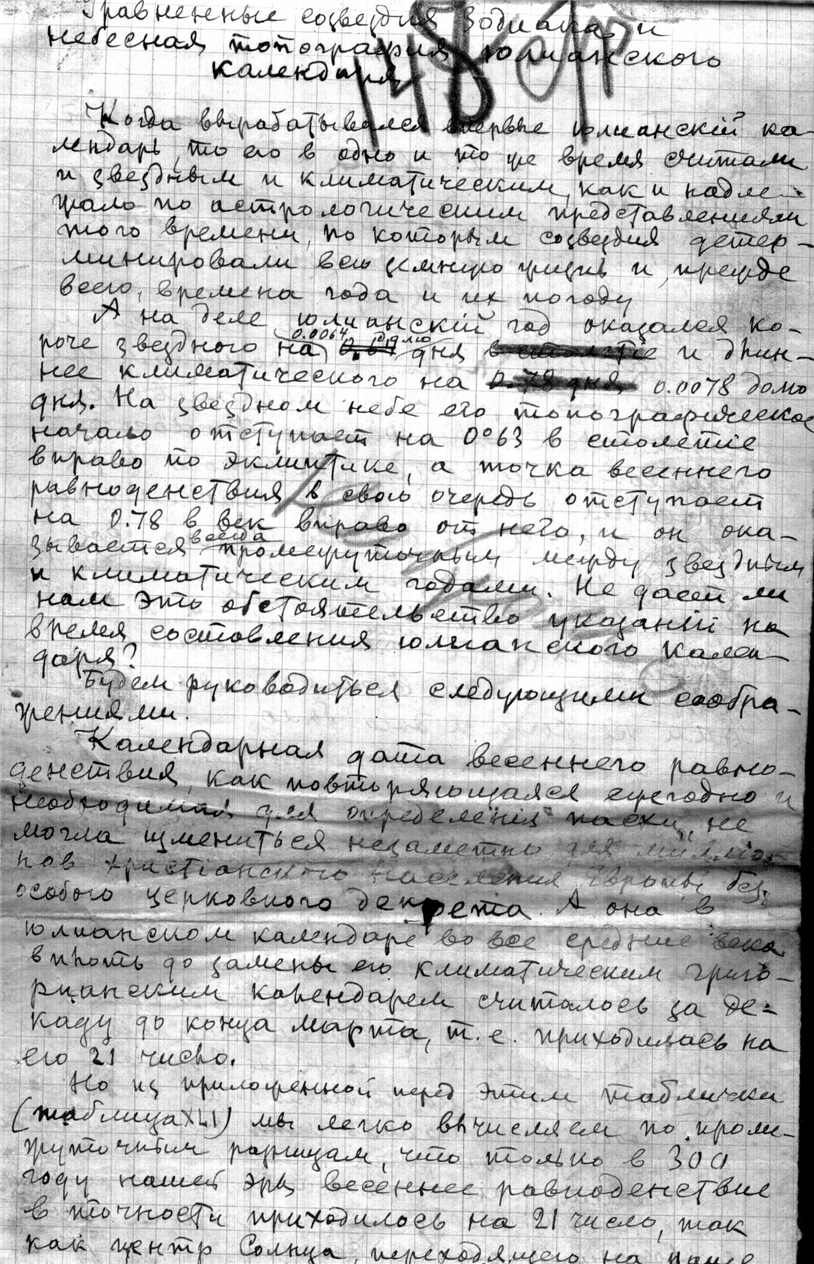 Уравненные созвездия Зодиака и
небесная топография юлианского
календаря
148
Когда вырабатывался впервые юлианскій ка-
лендарь, то его в одно и то же время считали
и звездным и климатическим, как и надле-
жало по астрологическим представлениям
того времени, по которым созвездия детер-
минировали всю земную жизнь и, прежде
всего, времена года и их погоду
А на деле юлианскій год оказался ко-
роче звездного на 0.0064 дня и длин-
нее климатического на 0.0078 долю
дня. На звездном небе его топографическое
начало отступает на 0°63 в столетие
вправо по эклиптике, а точка весеннего
равноденствия в свою очередь отступает
на 0.78 в век вправо от него, и он ока-
зывается всегда промежуточным между звездным
и климатическим годами. Не дает ли
нам это обстоятельство указаній на
время составления юлианского кален-
даря?
Будем руководиться следующими сообра-
жениями.
Календарная дата весеннего равно-
денствия, как повторяющаяся ежегодно и
необходимая для определенія пасхи, не
могла измениться незаметно для милліо-
нов христіанского населения Европы без
особого церковного декрета. А она в
юлианском календаре во все средние века
вплоть до замены его климатическим григо-
рианским календарем считалось за де-
каду до конца марта, т.е. приходилась на
его 21 число.
Но из приложенной перед этим таблички
(таблица XLI) мы легко вычисляем по проме-
жуточным разницам, что только в 300
году нашей эры весеннее равноденствие
в точности приходилось на 21 число, так
как центр Солнца, переходящего на